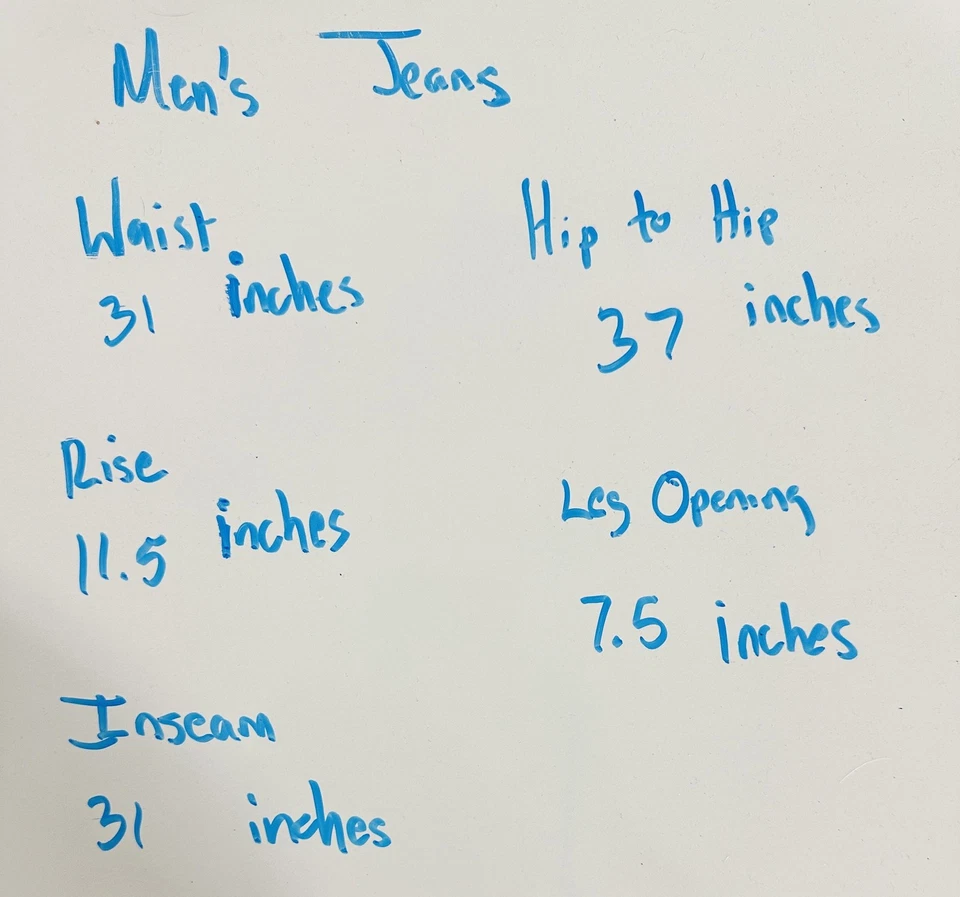 Men's Jeans
Waist
31 inches
Hip to Hip
37 inches
Rise
11.5 inches
Leg Opening
7.5 inches
Inseam
31 inches